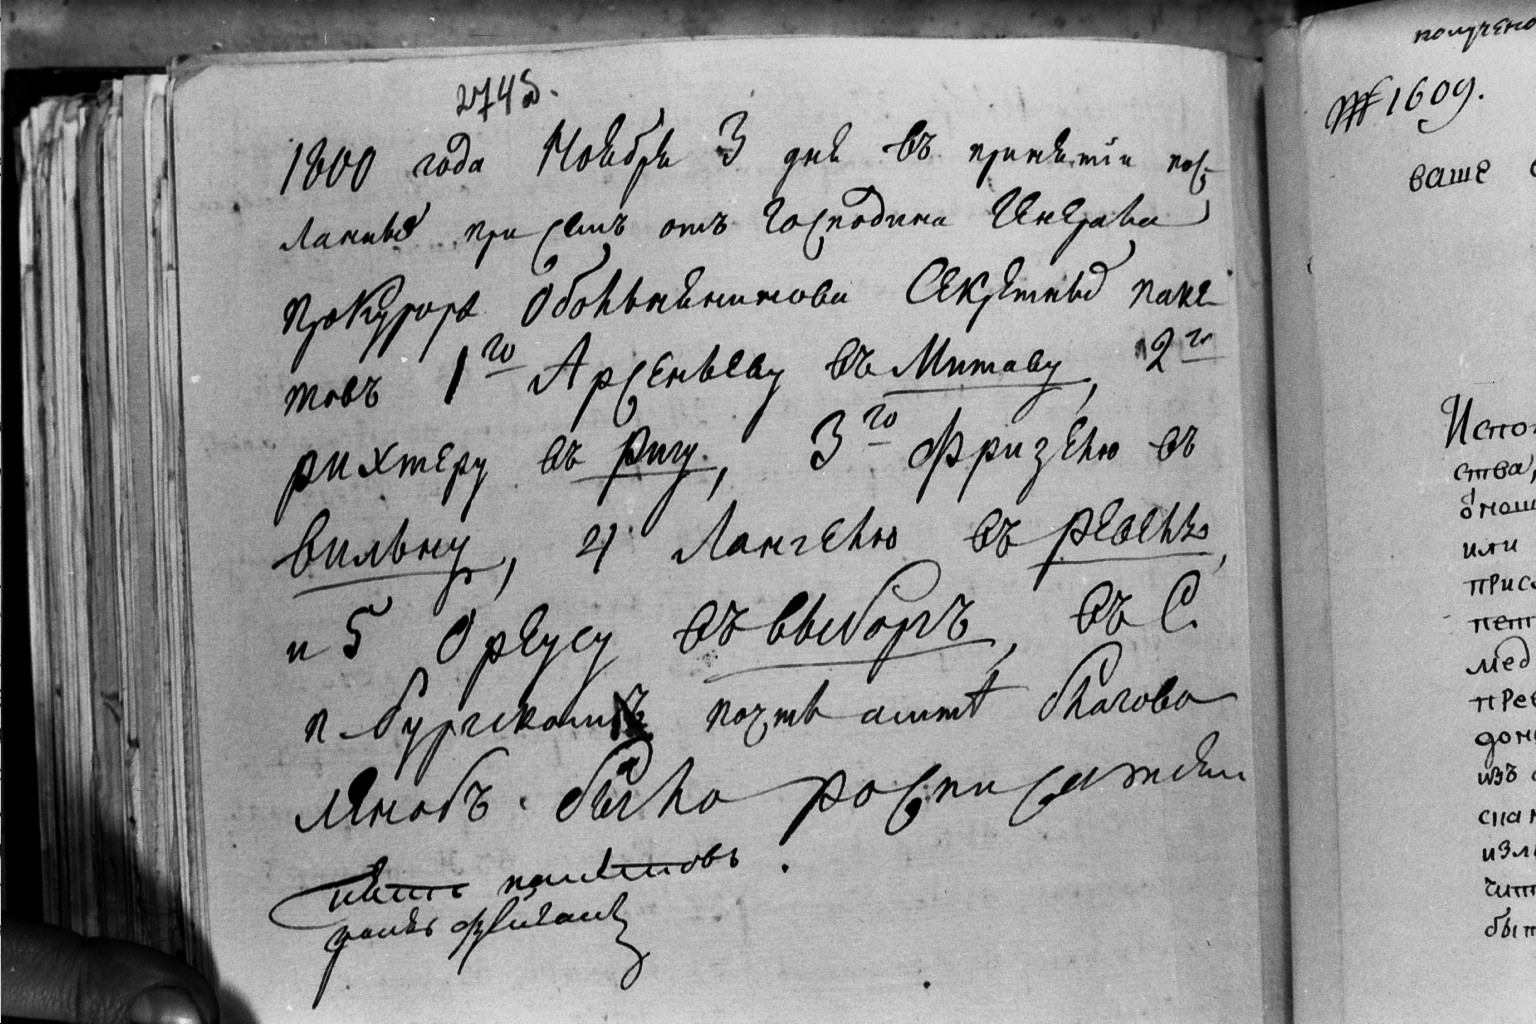 2745.
1800 года Ноября 3 дня въ приняти пос-
ланные при семъ отъ Господина Генерала
прокурора Обольянинова Секретные паке
товъ 1го Арсеньеву въ Митаву, 2го
рихтеру въ Ригу, 3го Фризелю въ
вильну, 4 Лангелю въ Ревель,
и 5 Ореусу въ выборгъ, въ С.
п бургскомъ почтъ амтѣ благово
лянобъ было росписатся
пять пакетовъ.
получено
№ 1609.
ваше
Испол
ства,
или
прис
мед
пре
дон
изъ
быт